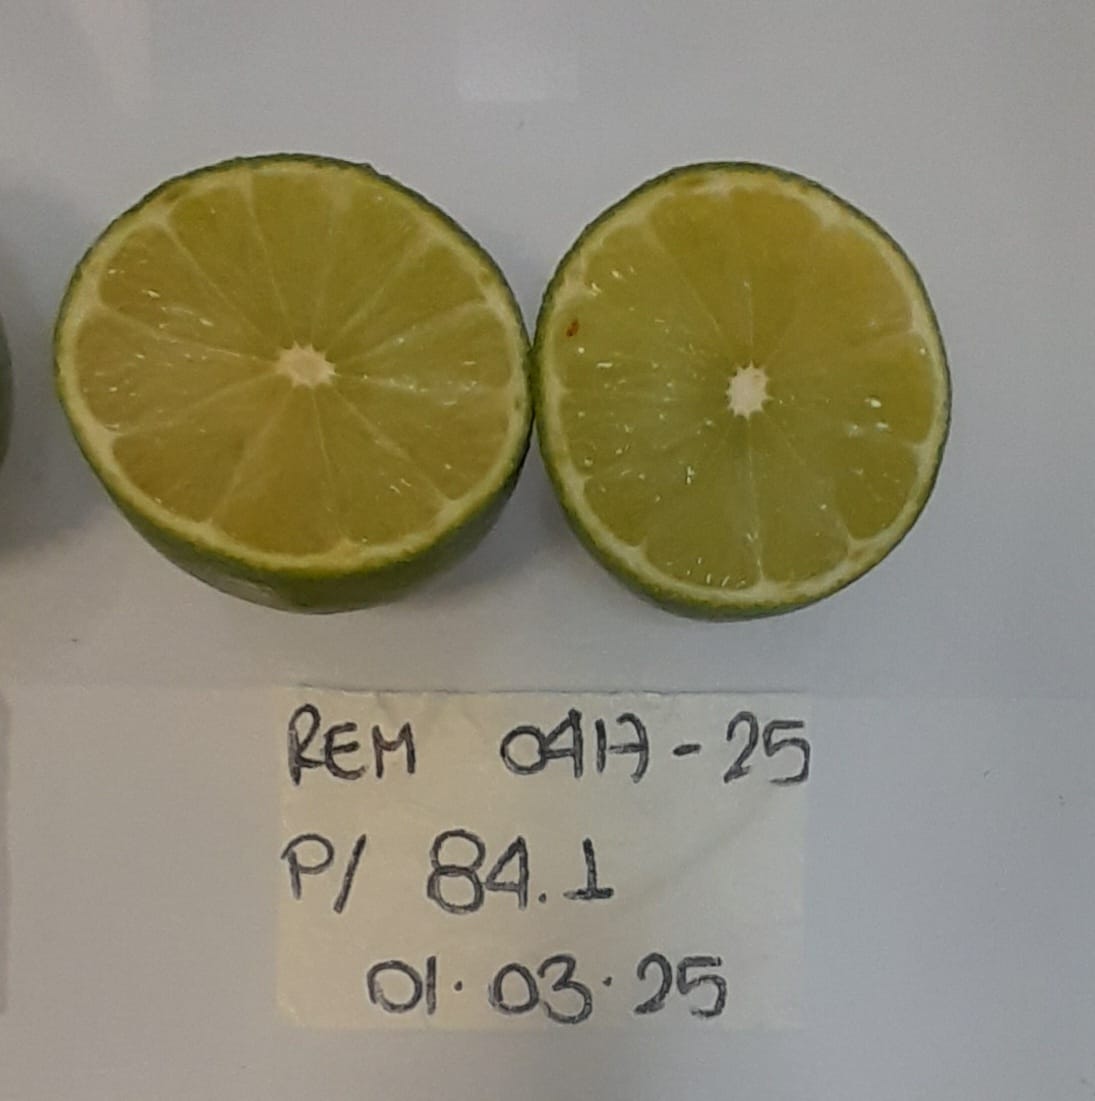 REM 0417-25
P/ 84.1
01.03.25